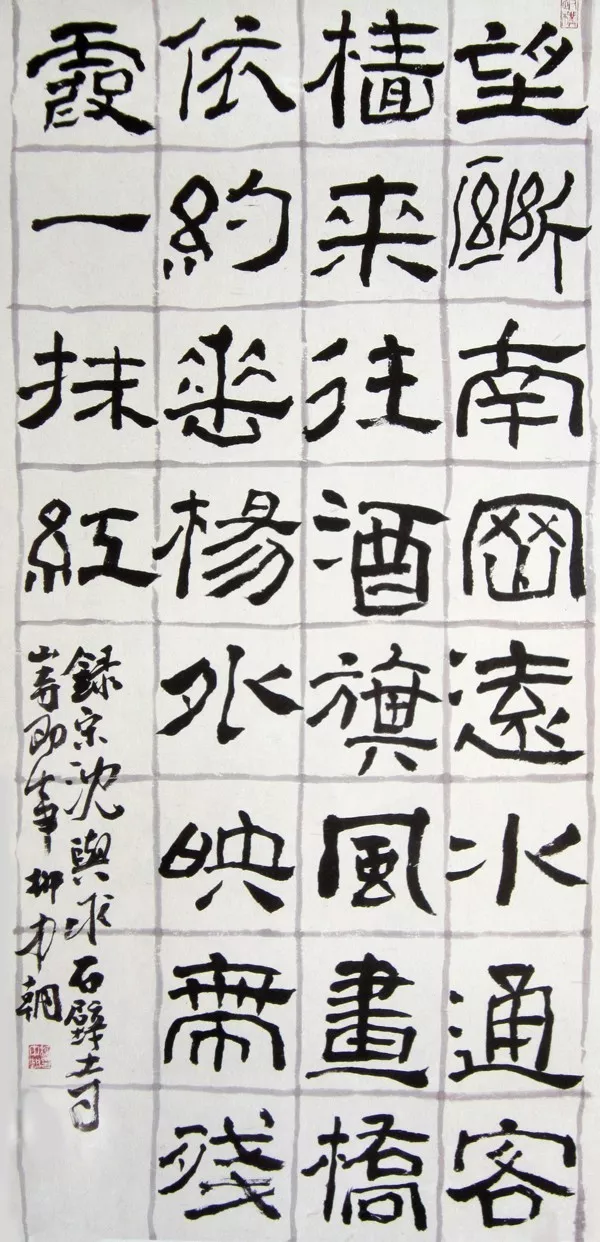 望斷南岡遠水通客
檣來往酒旗風畫橋
依約垂楊外映帶殘
霞一抹紅
錄宋沈與求石壁寺
山房即事柳才朝